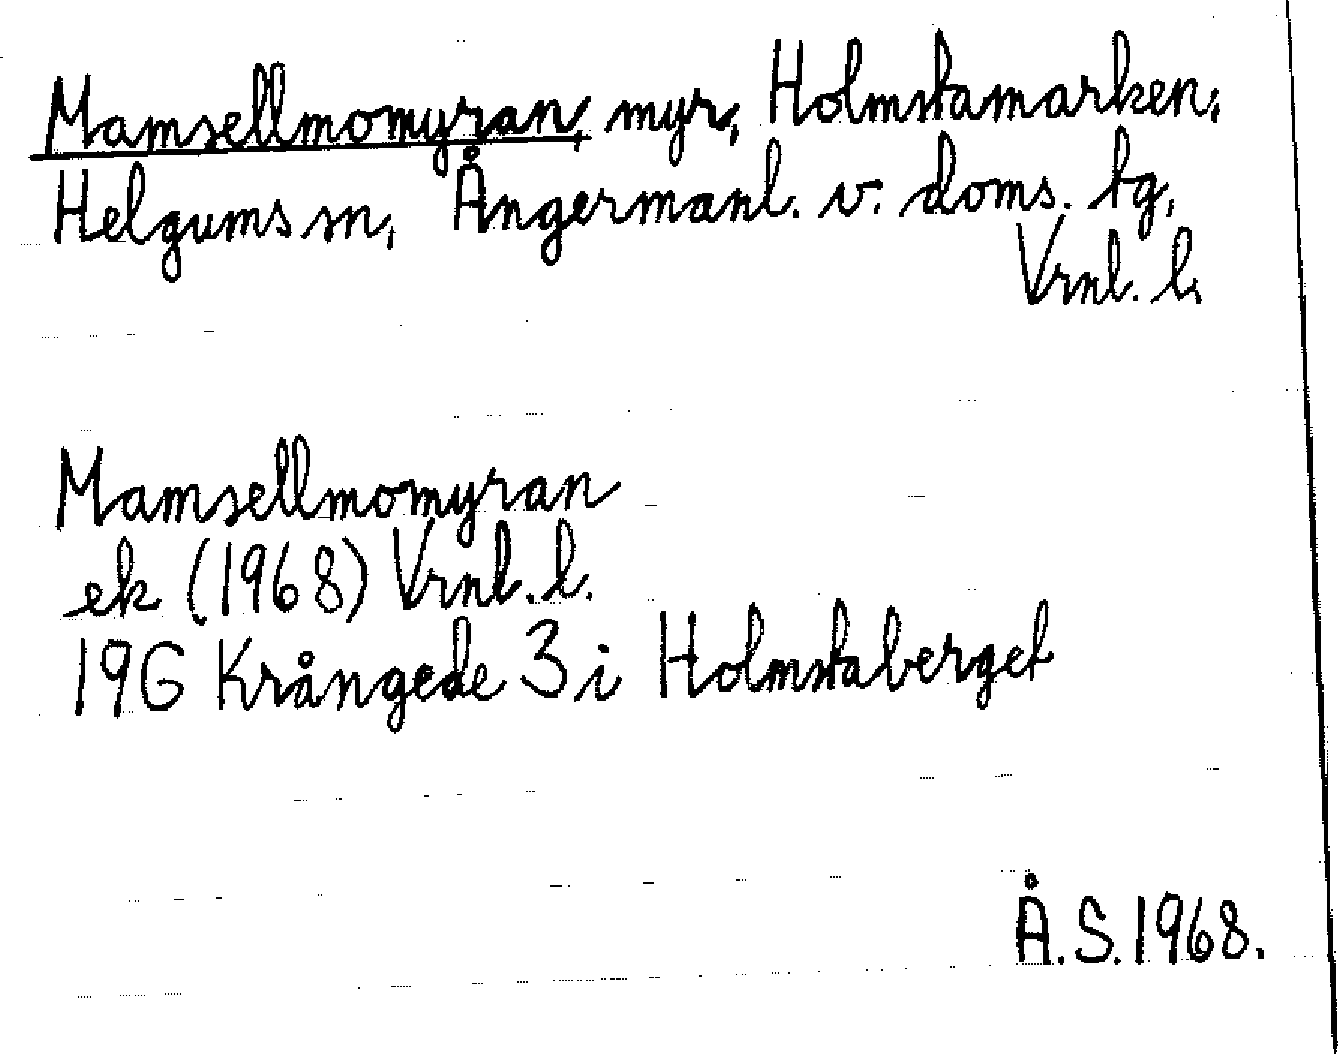 Mamsellmomyran, myr, Holmstamarken,
Helgums sn, Ångermanl. v. doms. tg,
Vrnl. l.
Mamsellmomyran
ek (1968) Vrnl. l.
19G Krångede 3 i Holmstaberget
Å.S.1968.